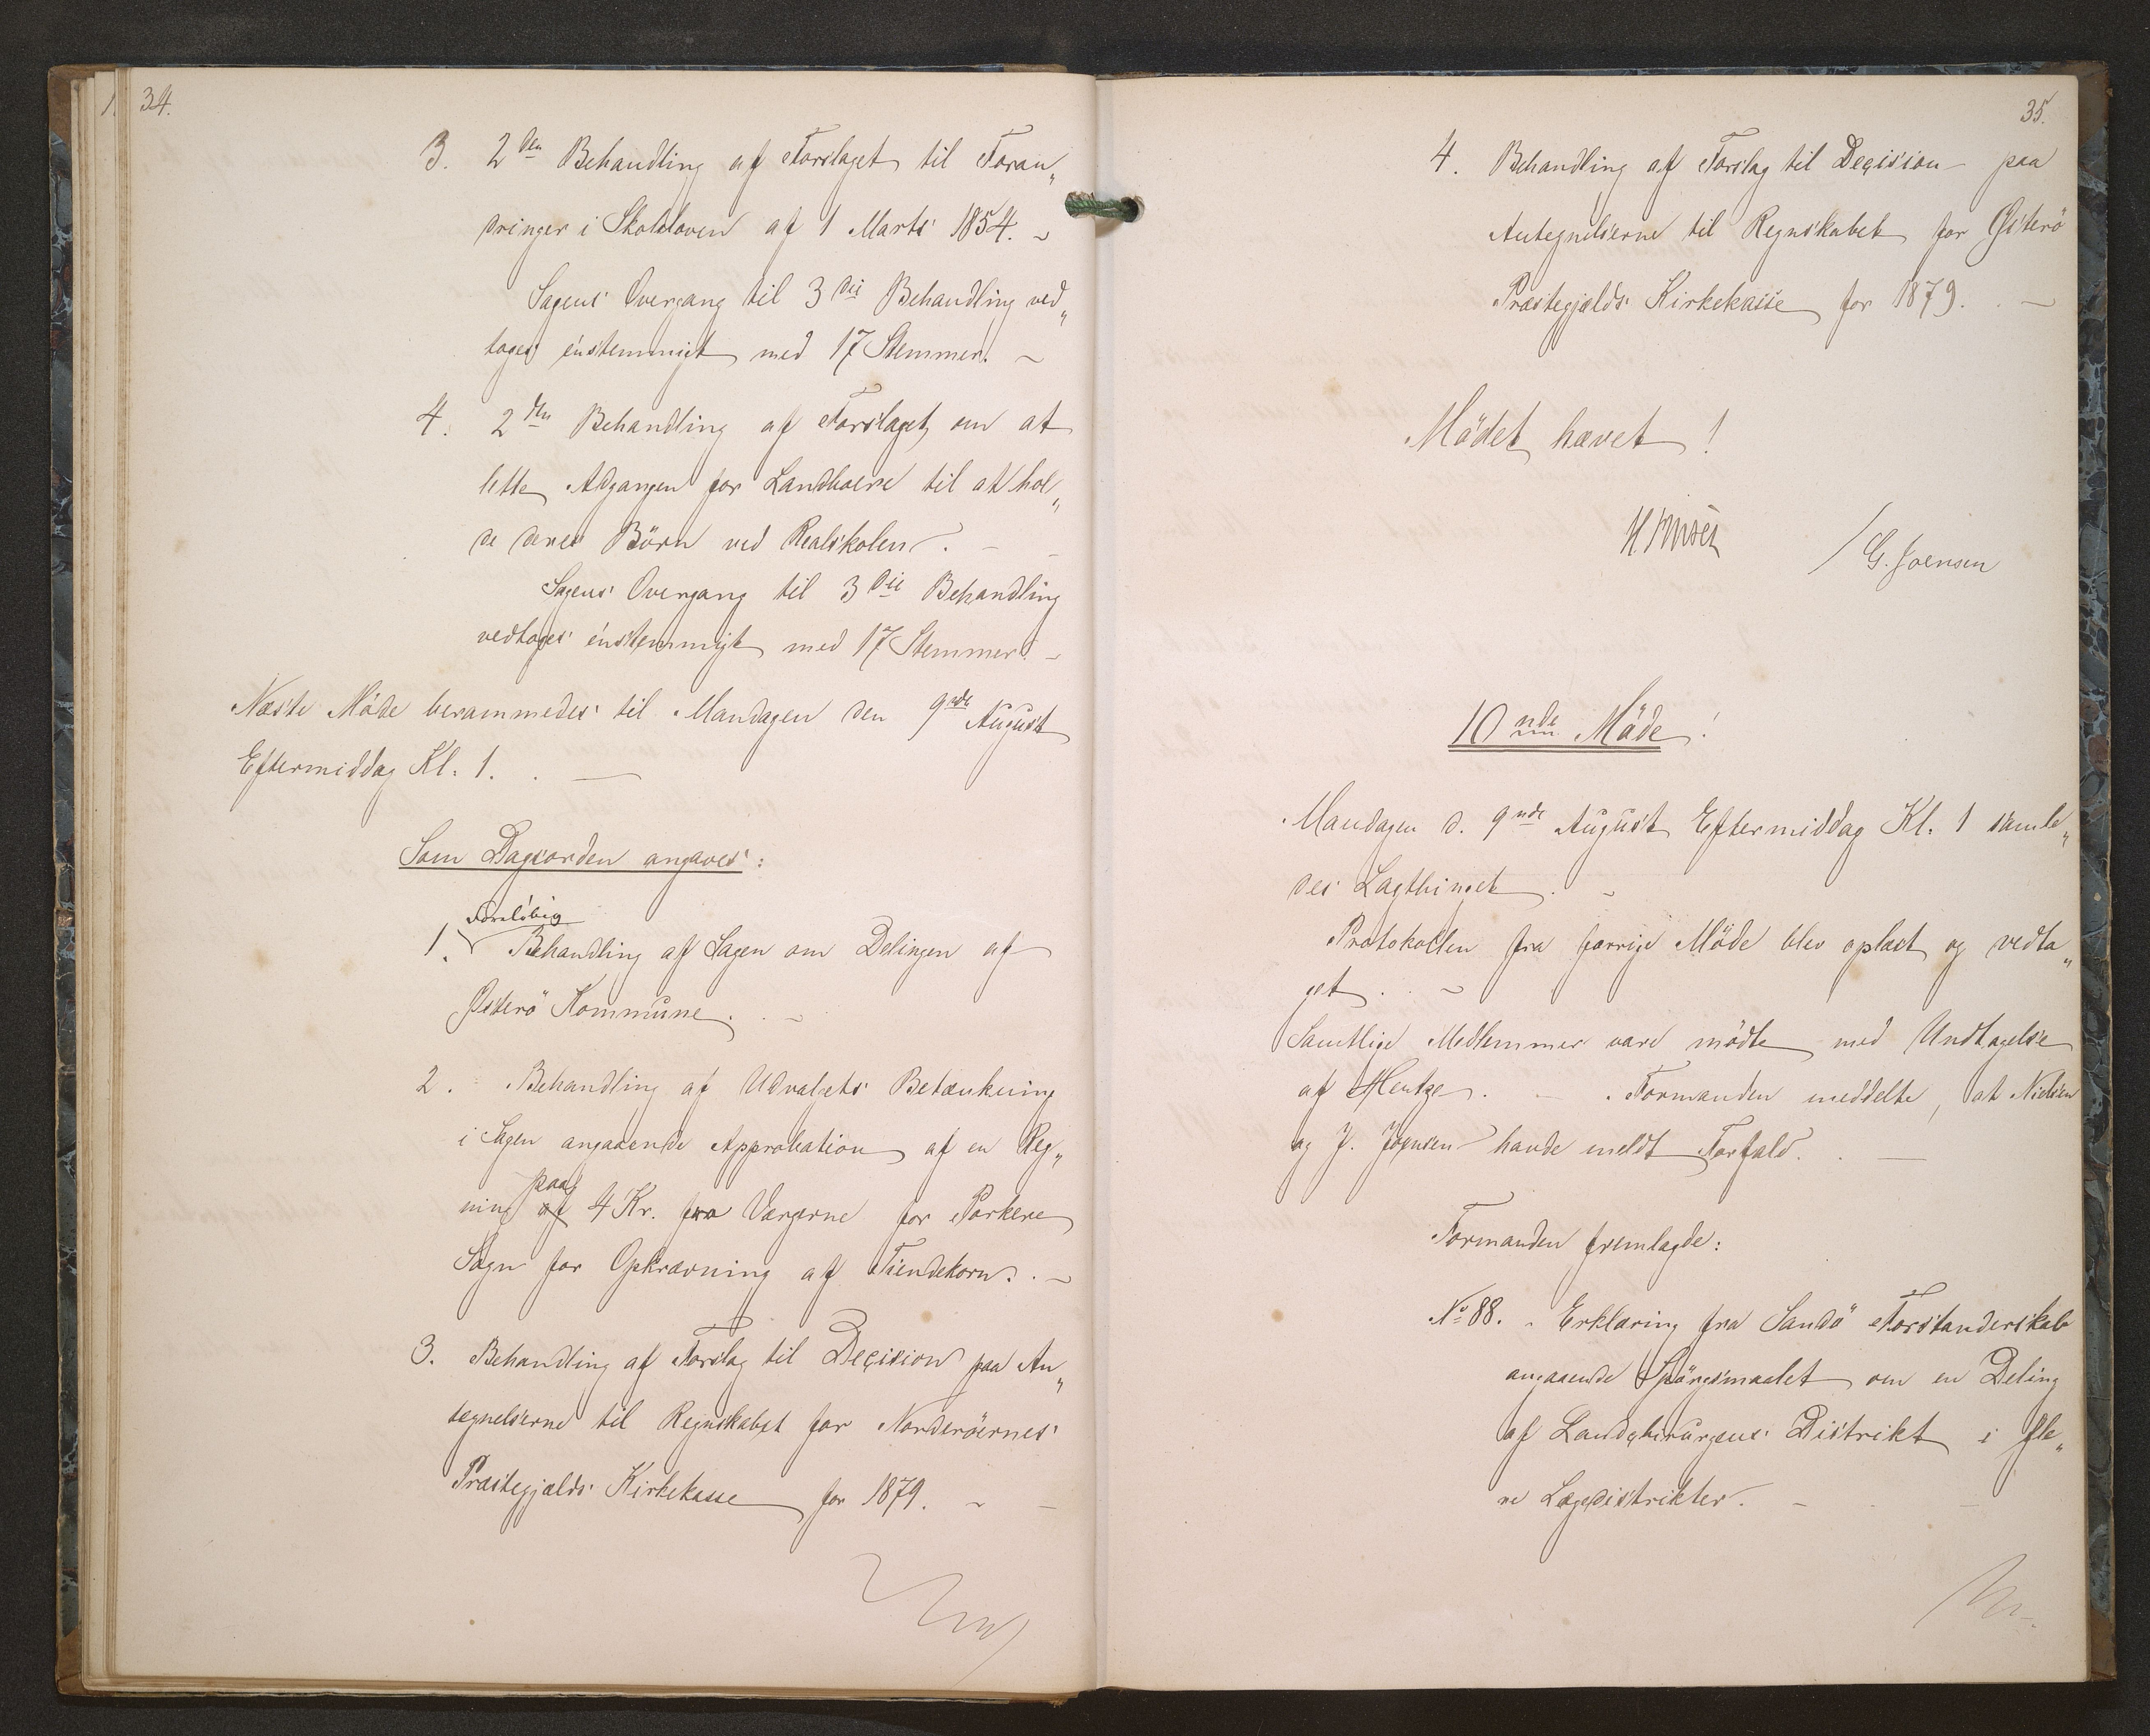 34.
3. 2den Behandling af Forslaget til Foran„
dringer i Skoleloven af 1 Marts 1854. –
Sagens Overgang til 3die Behandling ved„
toges énstemmigt med 17 Stemmer. –
4. 2den Behandling af Forslaget om at
lette Adgangen for Landboerne til at hol„
de deres Börn ved Realskolen. –
Sagens Overgang til 3die Behandling
vedtoges énstemmigt med 17 Stemmer. –
Næste Möde berammedes til Mandagen den 9nde August
Eftermiddag Kl. 1. –
Som Dagsorden angaves:
Foreløbig
1. Behandling af Sagen om Delingen af
Østerö Kommune. –
2. Behandling af Udvalgets Betænkning
i Sagen angaaende Approbation af en Reg„
paa
ning af 4 Kr. fra Værgerne for Porkere
Sogn for Opkrævning af Tiendekorn. –
3. Behandling af Forslag til Deçision paa An„
tegnelserne til Regnskabet for Norderöernes
Præstegjælds Kirkekasse for 1879. –
35.
4. Behandling af Forslag til Deçision paa
Antegnelserne til Regnskabet for Østerö
Præstegjælds Kirkekasse for 1879. –
Mödet hævet!
/ G. Joensen
10nde Möde!
Mandagen d. 9nde August Eftermiddag Kl. 1 samle„
des Lagthinget. –
Protokollen fra forrige Möde blev oplæst og vedta„
get. –
Samtlige Medlemmer vare mödte med Undtagelse
af Hentze. – Formanden meddelte, at Nielsen
og J. Joensen havde meldt Forfald. –
Formanden fremlagde:
No 88. Erklæring fra Sandö Forstanderskab
angaaende Spörgsmaalet om en Deling
af Landchirurgens Distrikt i fle„
re Lægedistrikter. –